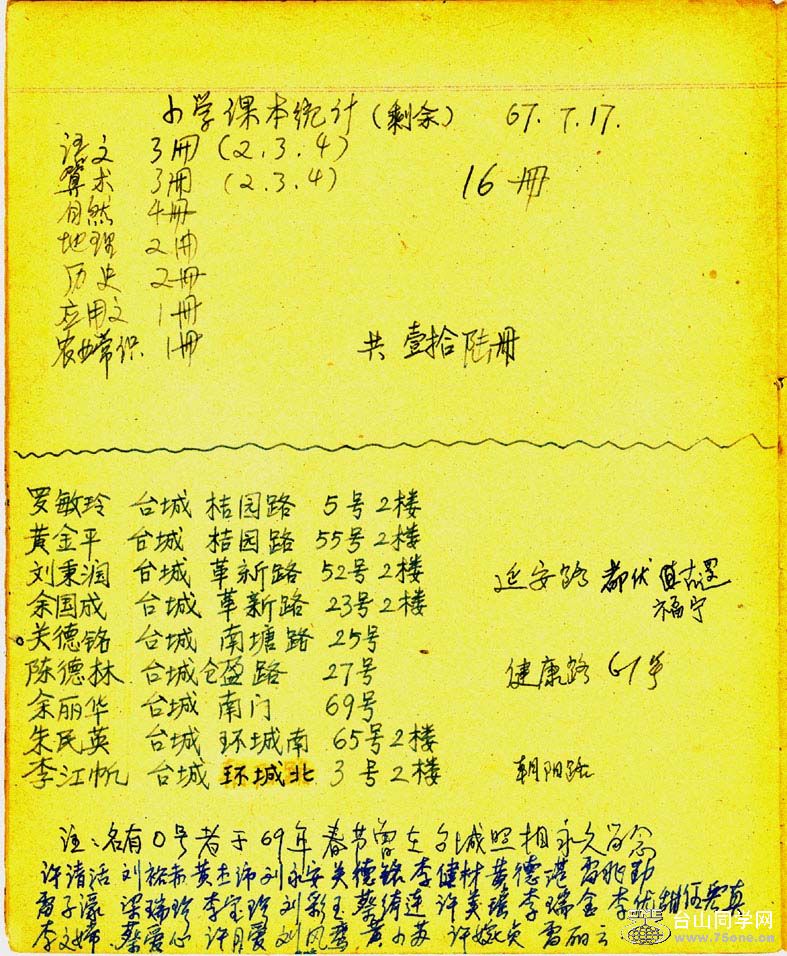 小学课本统计(剩余) 67.7.17.
语文 3册 (2.3.4)
算术 3册 (2.3.4) 16册
自然 4册
地理 2册
历史 2册
应用文 1册
农业常识 1册 共 壹拾陆册
罗敏玲 台城 桔园路 5号2楼
黄金平 台城 桔园路 55号2楼
刘秉润 台城 革新路 52号2楼 延安路 都伏
余国成 台城 革新路 23号2楼 福宁
关德铭 台城 南塘路 25号
陈德林 台城仓盈路 27号 健康路 61号
余丽华 台城 南门 69号
朱民英 台城 环城南 65号2楼
李江帆 台城 环城北 3号2楼 朝阳路
注:名有0号者于69年春节曾在台城照相永久留念
许清活 刘裕赤 黄 刘永安 关德铭 李健材 黄德 雷兆勤
雷子濠 梁瑞珍 李宝珍 刘彩玉 蔡绮连 许美 李瑞金 李优甜
李文嫦 蔡爱心 许月爱 刘凤鸾 黄小苏 许婉贞 雷丽云
台山同学网
www.75one.cn